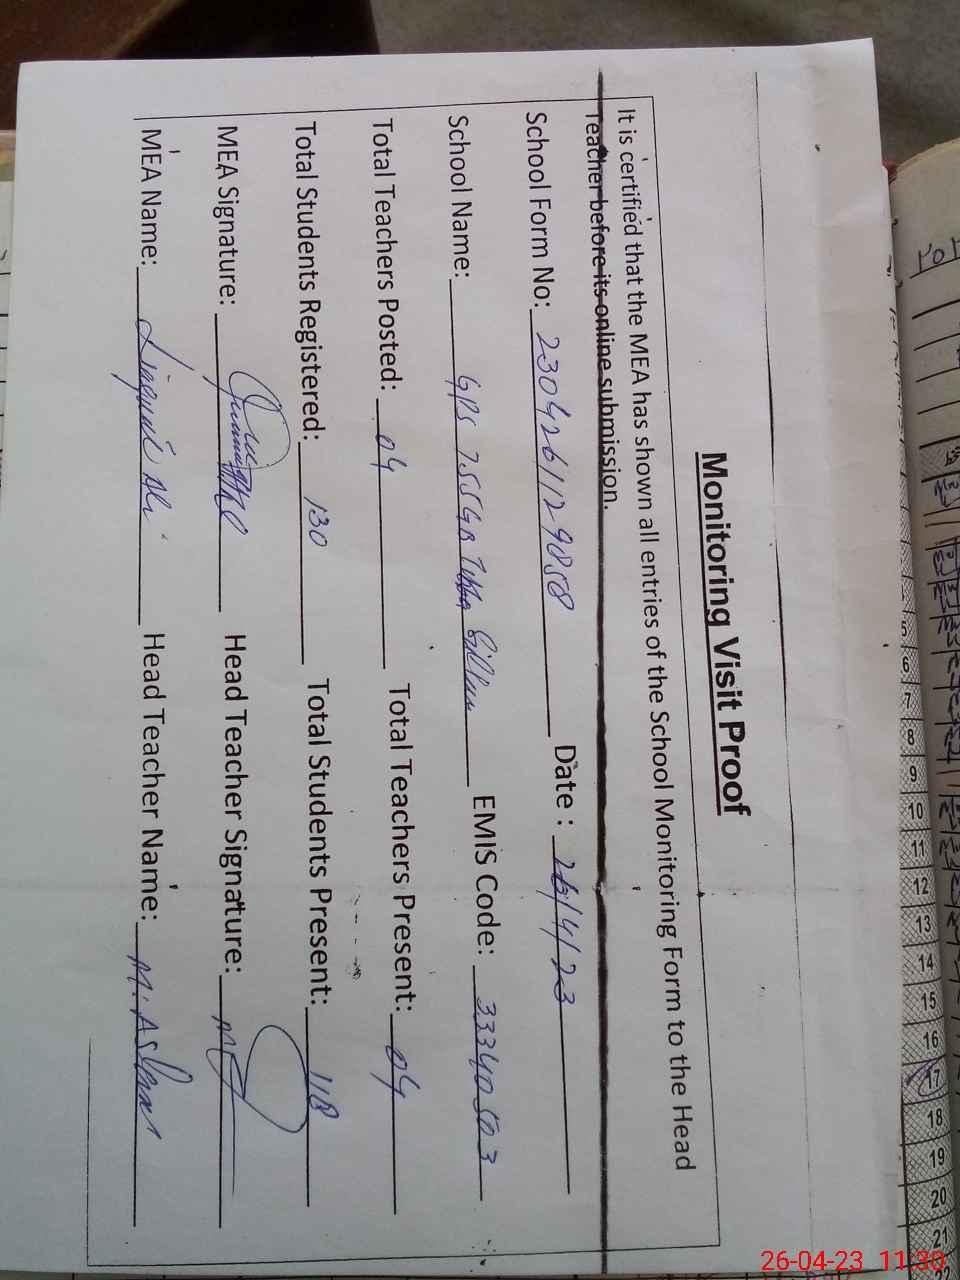 Monitoring Visit Proof
It is certified that the MEA has shown all entries of the School Monitoring Form to the Head
Teacher before its online submission.
School Form No: 230426112 9858 Date : 26/4/23
School Name: GPS 755GB EMIS Code: 33340503
Total Teachers Posted: 04 Total Teachers Present: 04
Total Students Registered: 130 Total Students Present: 118
MEA Signature: Head Teacher Signature:
MEA Name: Liaquat Ali Head Teacher Name: M. Aslam
5
6
7
8
9
10
11
12
13
14
15
16
17
18
19
20
21
26-04-23 11:30